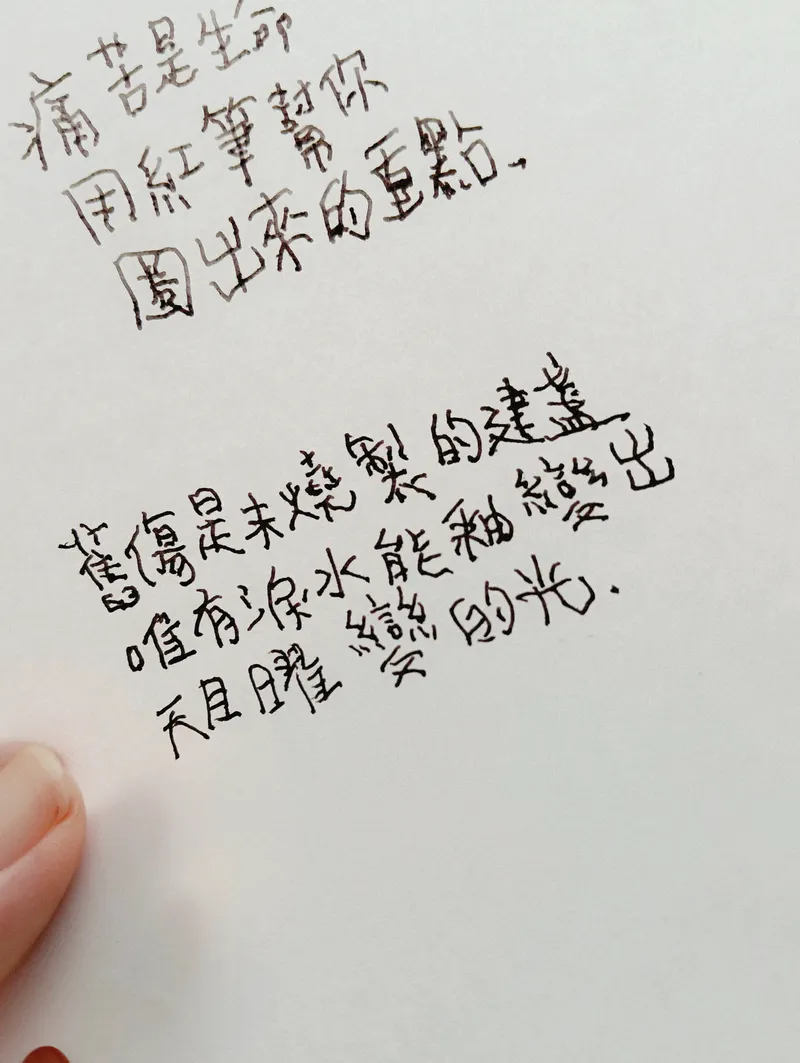 痛苦是生命
用紅筆幫你
圈出來的重點.
舊傷是未燒製的建盞
唯有淚水能釉變出
天目曜變的光.